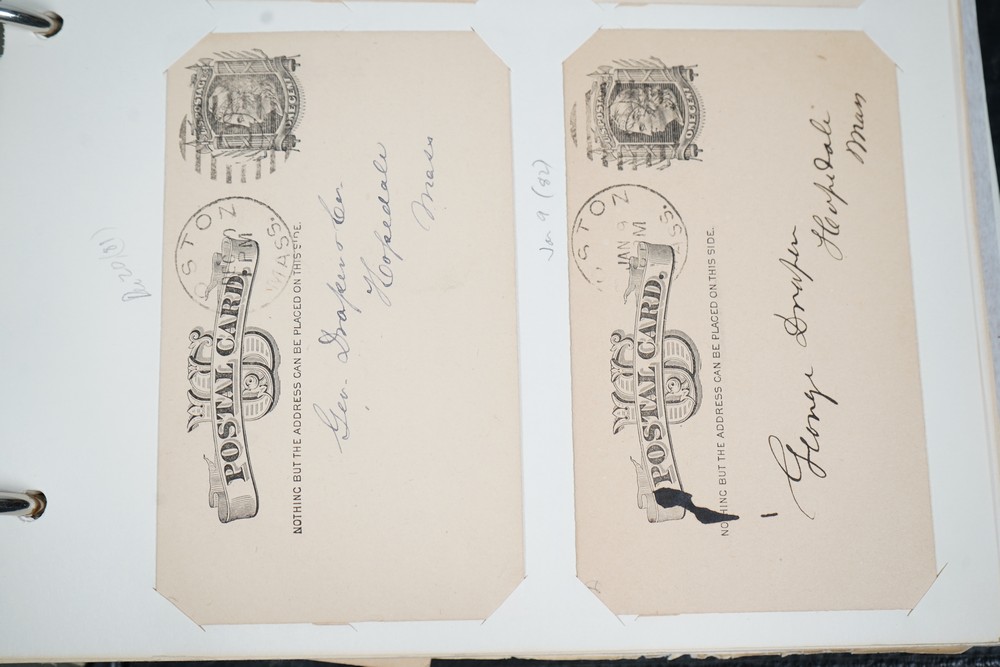 U.S. POSTAGE
ONE CENT
POSTAL CARD.
US
NOTHING BUT THE ADDRESS CAN BE PLACED ON THIS SIDE.
Geo. Draper
Hopedale
Mass
MASS.
PM
Jan 9 (82)
ONE CENT
POSTAL CARD.
US
JAN 9
M
MASS.
NOTHING BUT THE ADDRESS CAN BE PLACED ON THIS SIDE.
George Draper
Hopedale
Mass